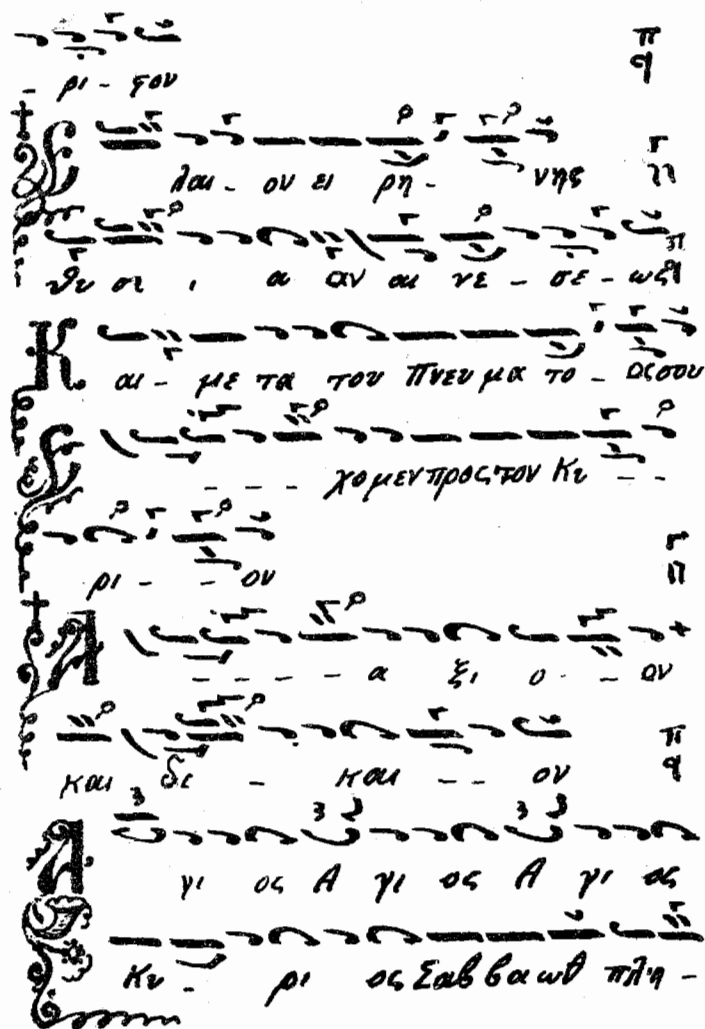 ρι - τον
Ε λαι - ον ει ρη - νης
θυ σι , α αν αι νε - σε - ως
Κ αι - με τα του Πνευ μα το - ος σου
Ε - - - χο μεν προς τον Κυ - -
ρι - - ον
Α - - - - - α ξι ο - - ον
και δι - και - - ον
Α γι ος Α γι ος Α γι ος
Κυ - ρι ος Σαβ βα ωθ πλη -